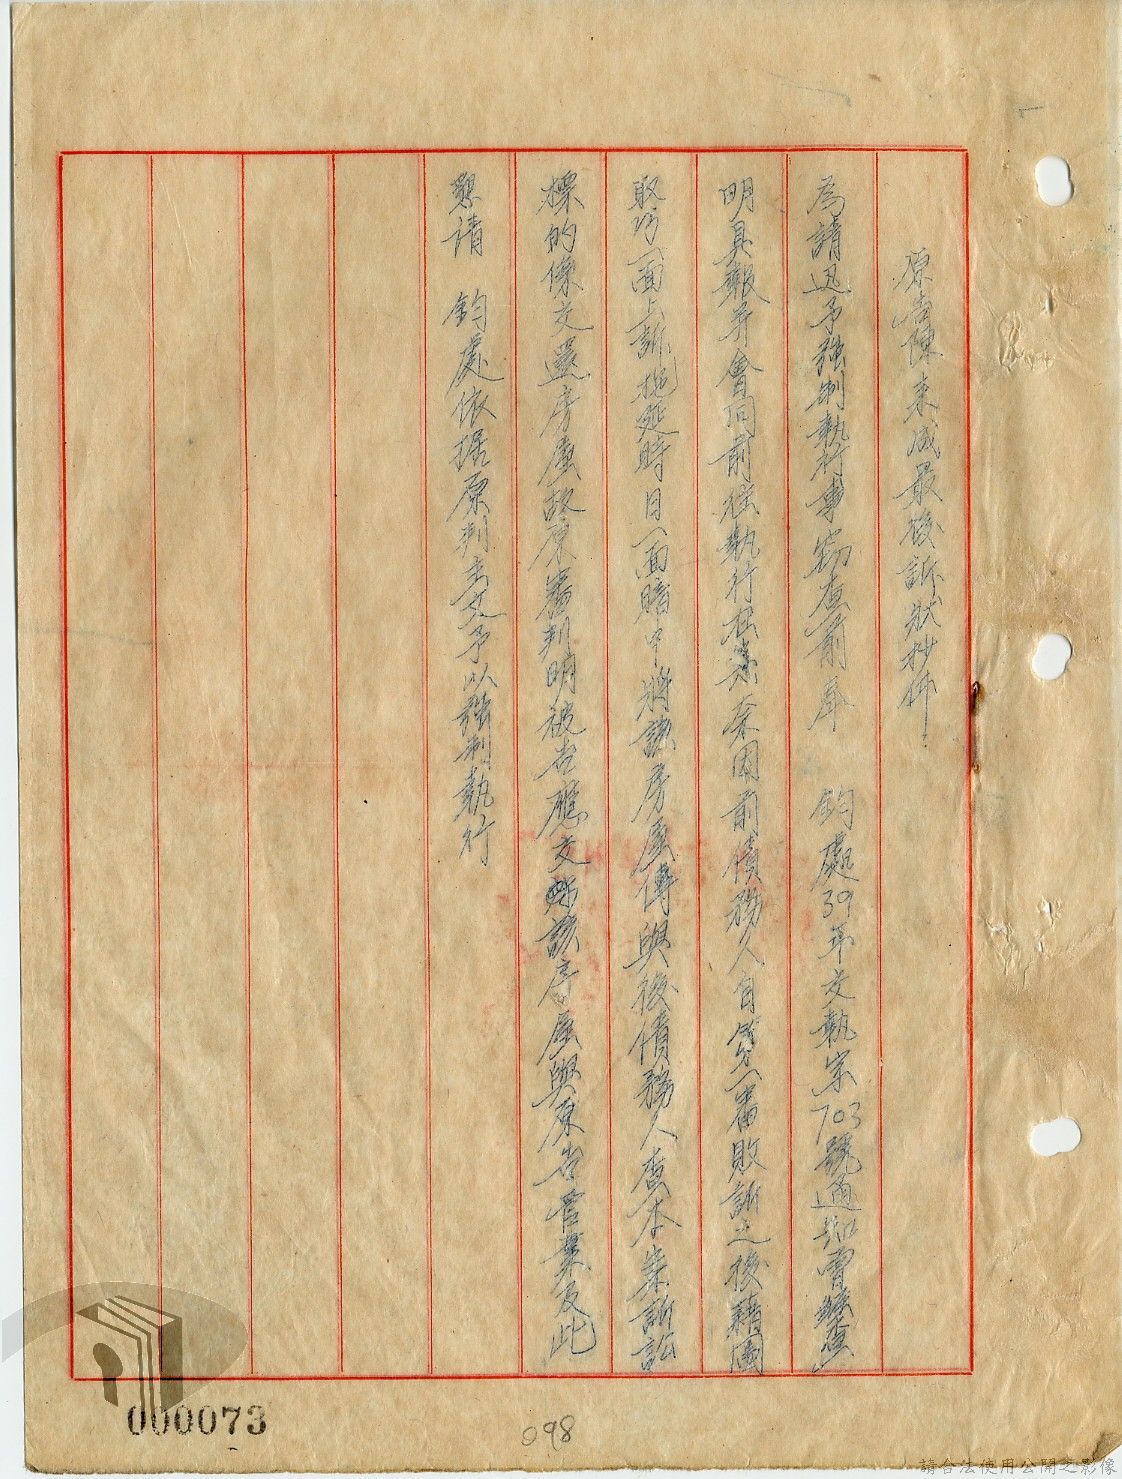 原告陳来成最後訴狀抄件
為請迅予強制執行事窃查前奉　鈞處39年文執宗703號通知曾經查
明具報並會同前往執行在案奈因前債務人自第一審敗訴之後藉圖
取巧一面上訴拖延時日一面暗中將該房屋傳與後債務人查本案訴訟
標的係交還房屋故原審判明被告應交該房屋與原告管業及此
懇请　鈞處依据原判主文予以強制執行
000073
098
請合法使用公開之影像